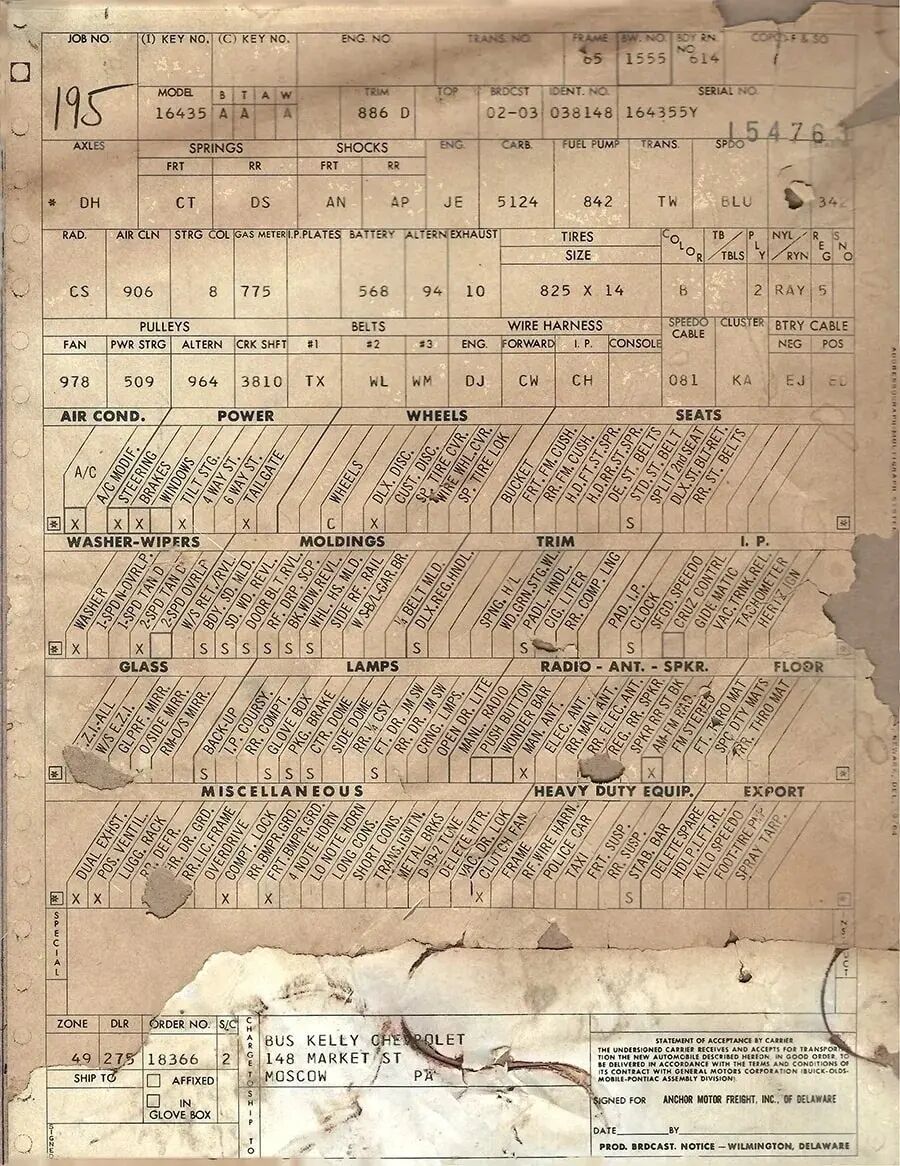 JOB NO. (1) KEY NO. (C) KEY NO. ENG. NO. TRANS. NO. FRAME BW. NO. BDY RN. NO COPO-F & SO
65 1555 614
195
MODEL B T A W TRIM TOP BRDCST IDENT. NO. SERIAL NO.
16435 A A A 886 D 02-03 038148 164355Y
154763
AXLES SPRINGS SHOCKS ENG. CARB. FUEL PUMP TRANS. SPDO
FRT RR FRT RR
* DH CT DS AN AP JE 5124 842 TW BLU 342
RAD. AIR CLN STRG COL GAS METER I.P.PLATES BATTERY ALTERN EXHAUST TIRES COLOR TB/TBLS PLY NYL/RYN REG SNO
SIZE
CS 906 8 775 568 94 10 825 X 14 B 2 RAY 5
PULLEYS BELTS WIRE HARNESS SPEEDO CABLE CLUSTER BTRY CABLE
FAN PWR STRG ALTERN CRK SHFT #1 #2 #3 ENG. FORWARD I. P. CONSOLE NEG POS
978 509 964 3810 TX WL WM DJ CW CH 081 KA EJ ED
AIR COND. POWER WHEELS SEATS
A/C A/C MODIF. STEERING BRAKES WINDOWS TILT STG. 4 WAY ST. 6 WAY ST. TAILGATE WHEELS DLX. DISC. CUST. DISC. SP. TIRE CVR. WIRE WHL. CVR. SP. TIRE LOK BUCKET FRT. FM. CUSH. RR. FM. CUSH. H.D. FT. ST. SPR. H.D. RR. ST. SPR. DE. ST. BELTS STD. ST. BELT SPLIT 2nd SEAT DLX. ST. BLT-RET. RR. ST. BELTS
* X X X X X C X S *
WASHER-WIPERS MOLDINGS TRIM I. P.
WASHER 1-SPD N-OVRLP. 1-SPD TAN D 2-SPD TAN D 2-SPD OVRLP W/S RET./RVL. BDY. SD. MLD. SD. WD. REVL. DOOR BLT. RVL. RF. DRP. SCP. BK. WDW. REVL. WHL. HS. MLD. SIDE RF. RAIL W.S-B/L-GAR. BR. ¼ BELT MLD. DLX. REG. HNDL. SPNG. H/L WD. GRN. STG. WL. PADL. HNDL. CIG. LITER RR. COMP. LNG PAD. I.P. CLOCK SFGD. SPEEDO CRUZ CONTRL GIDE MATIC VAC. TRNK. REL. TACHOMETER
* X X S S S S S S S S S *
GLASS LAMPS RADIO - ANT. - SPKR. FLOOR
E.Z.I.-ALL W/S E.Z.I. GLPRF. MIRR. O/SIDE MIRR. RM-O/S MIRR. BACK-UP I.P. COURSY. RR. COMPT. GLOVE BOX PKG. BRAKE CTR. DOME SIDE DOME RR. ¼ CSY FT. DR. JM SW RR. DR. JM SW CRNG. LMPS. OPEN DR. LITE MANL. RADIO PUSH BUTTON WONDER BAR MAN. ANT. ELEC. ANT. RR. MAN. ANT. RR. ELEC. ANT. REG. RR. SPKR. SPKR RR ST BK AM-FM RAD. FM STEREO FT. THRO MAT SPC DTY MATS RR. THRO MAT
* S S S S S X X *
MISCELLANEOUS HEAVY DUTY EQUIP. EXPORT
DUAL EXHST. POS. VENTIL. LUGG. RACK RR. DEFR. RR. LIC. FRAME OVERDRIVE COMPT. LOCK RR. BMPR. GRD. FRT. BMPR. GRD. 4 NOTE HORN LO NOTE HORN LONG CONS. SHORT CONS. TRANS. GNTN. METAL BRKS DELETE HTR. VAC. DR. LOK CLUTCH FAN FRAME RF. WIRE HARN. POLICE CAR TAXI FRT. SUSP. RR. SUSP. STAB. BAR DELETE SPARE HDLP. LFT. RT. KILO SPEEDO FOOT-TIRE PMP SPRAY TARP.
* X X X X X S *
SPECIAL
ZONE DLR ORDER NO. S/C CHARGE TO SHIP TO
49 275 18366 2
BUS KELLY CHEVROLET
148 MARKET ST
MOSCOW PA
SHIP TO
AFFIXED
IN
GLOVE BOX
SIGNED
STATEMENT OF ACCEPTANCE BY CARRIER
THE UNDERSIGNED CARRIER RECEIVES AND ACCEPTS FOR TRANSPORTA-
TION THE NEW AUTOMOBILE DESCRIBED HEREON, IN GOOD ORDER, TO
BE DELIVERED IN ACCORDANCE WITH THE TERMS AND CONDITIONS OF
ITS CONTRACT WITH GENERAL MOTORS CORPORATION (BUICK-OLDS-
MOBILE-PONTIAC ASSEMBLY DIVISION).
SIGNED FOR ANCHOR MOTOR FREIGHT, INC., OF DELAWARE
DATE BY
PROD. BRDCAST. NOTICE — WILMINGTON, DELAWARE